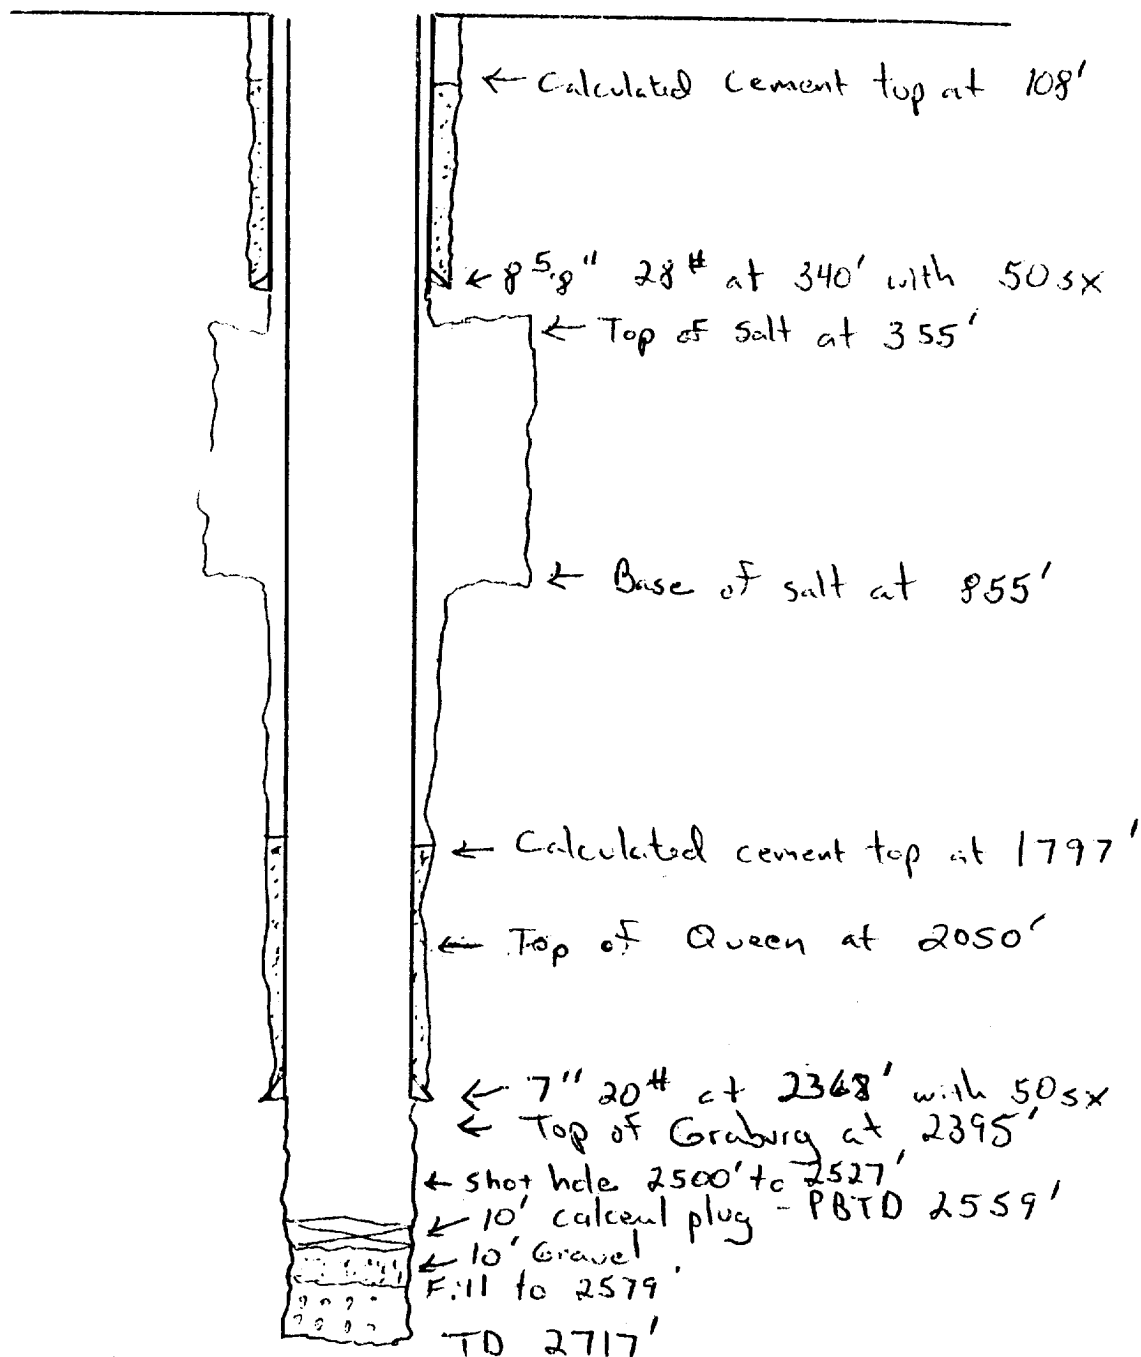 ← Calculated cement top at 108'
← 8 5/8" 28# at 340' with 50 sx
← Top of Salt at 355'
← Base of salt at 855'
← Calculated cement top at 1797'
← Top of Queen at 2050'
← 7" 20# at 2368' with 50 sx
← Top of Graburg at 2395'
← Shot hole 2500' to 2527'
← 10' calceal plug - PBTD 2559'
← 10' Gravel
Fill to 2579'
TD 2717'